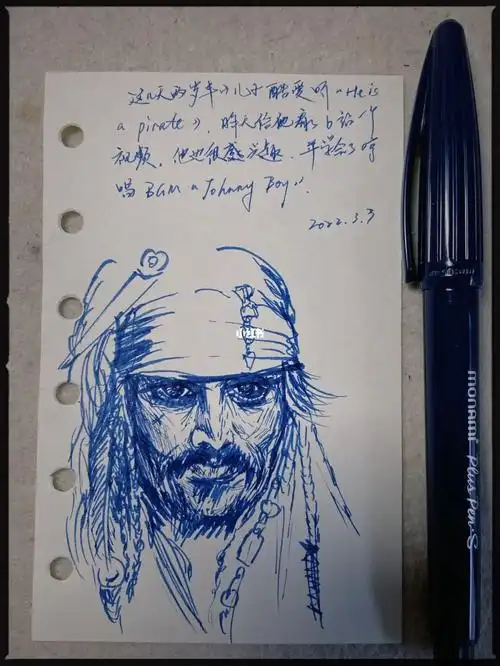 这几天两岁半小儿子酷爱听《He is
a pirate》，昨天给他看了b站一个
视频，他也很感兴趣，并学会了哼
唱BGM《Johnny Boy》.
2022.3.3
小红书
monami Plus Pen-S